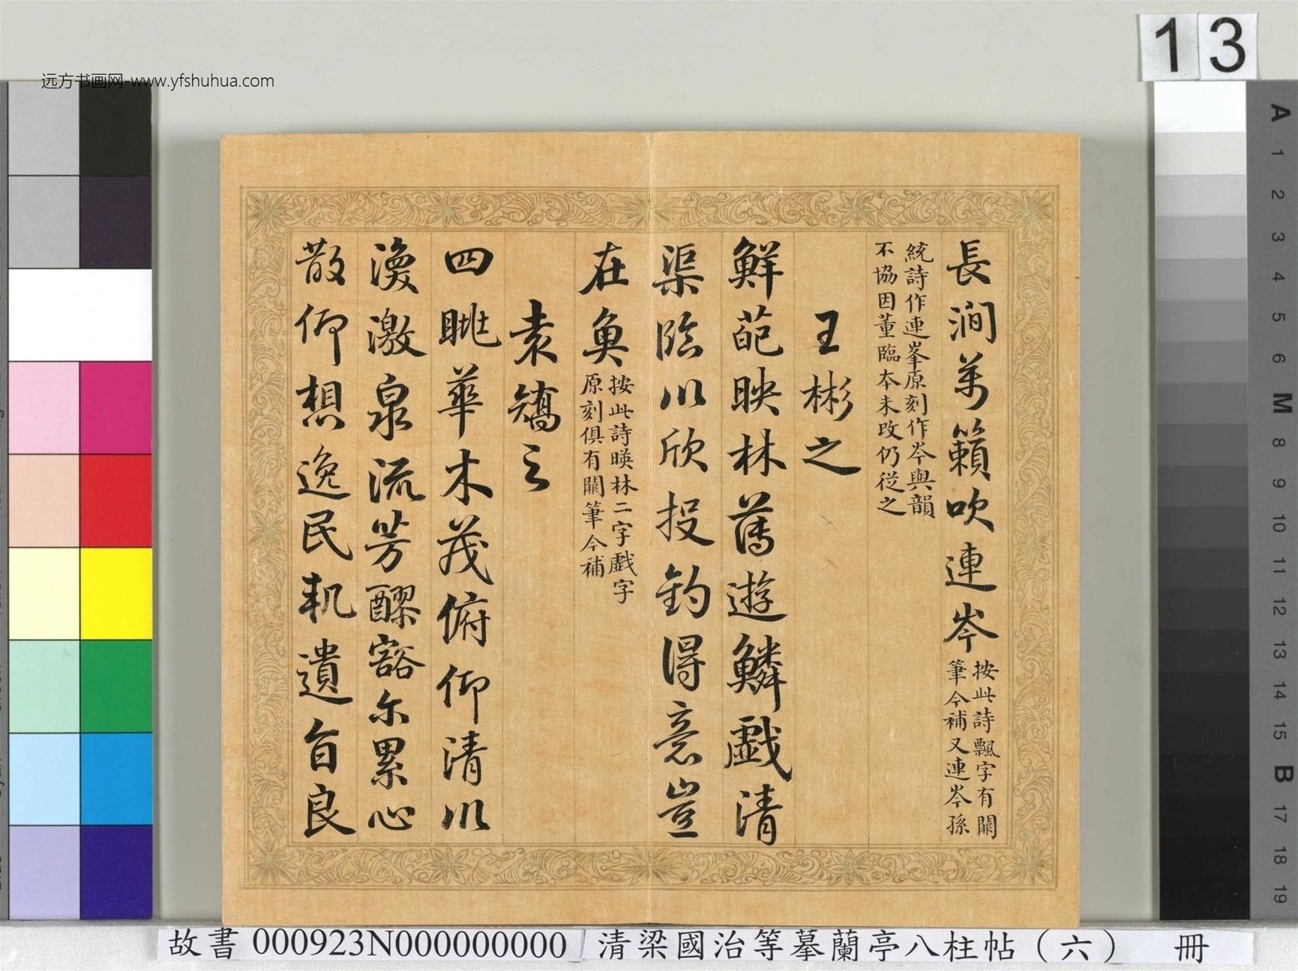 13
远方书画网-www.yfshuhua.com
長澗萬籟吹連岑
按此詩飄字有闕
筆今補又連岑孫
統詩作連峯原刻作岑與韻
不協因董臨本未改仍從之
王彬之
鮮葩映林薄遊鱗戲清
渠臨川欣投釣得意豈
在魚
按此詩暎林二字戲字
原刻俱有闕筆今補
袁嶠之
四眺華木茂俯仰清川
渙激泉流芳醪豁尔累心
散仰想逸民軌遺旨良
A 1 2 3 4 5 6 M 8 9 10 11 12 13 14 15 B 17 18 19
故書 000923N000000000 清梁國治等摹蘭亭八柱帖（六） 冊